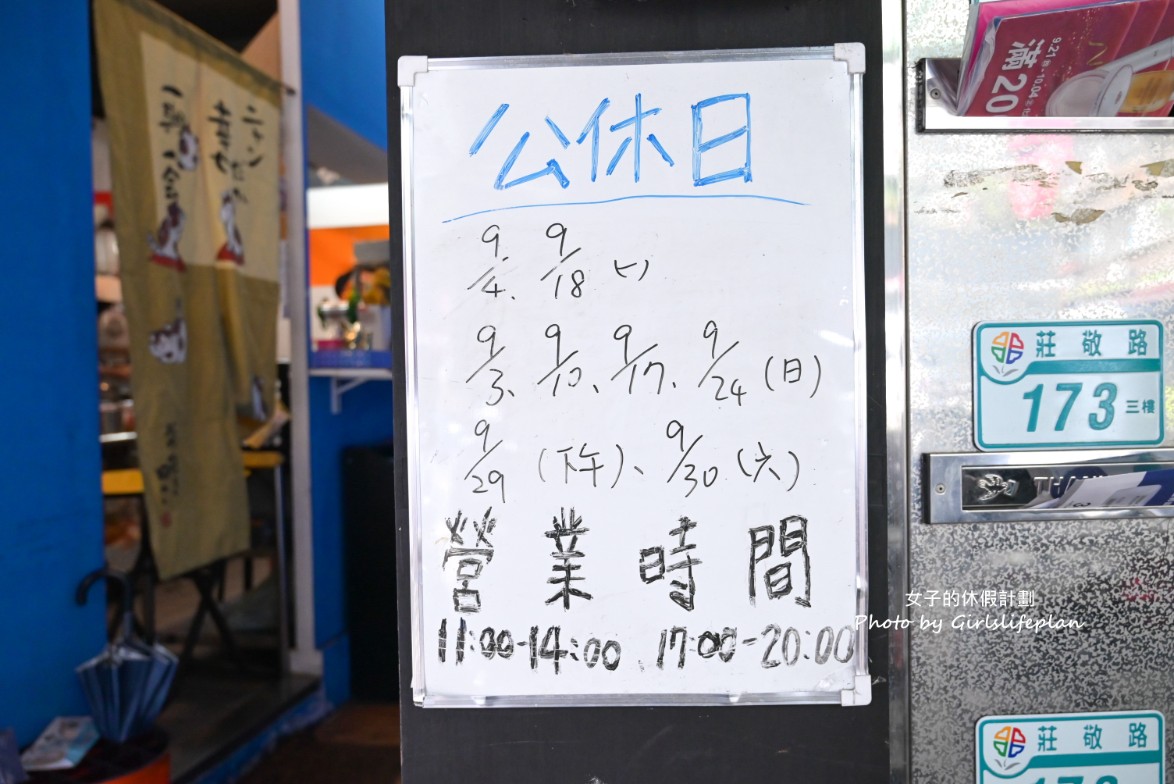 公休日
9/4、9/18 (一)
9/3、9/10、9/17、9/24 (日)
9/29 (下午)、9/30 (六)
營業時間
11:00-14:00 17:00-20:00
9.21
10.04
滿20
莊敬路
173 三樓
女子的休假計劃
Photo by Girlslifeplan
莊敬路